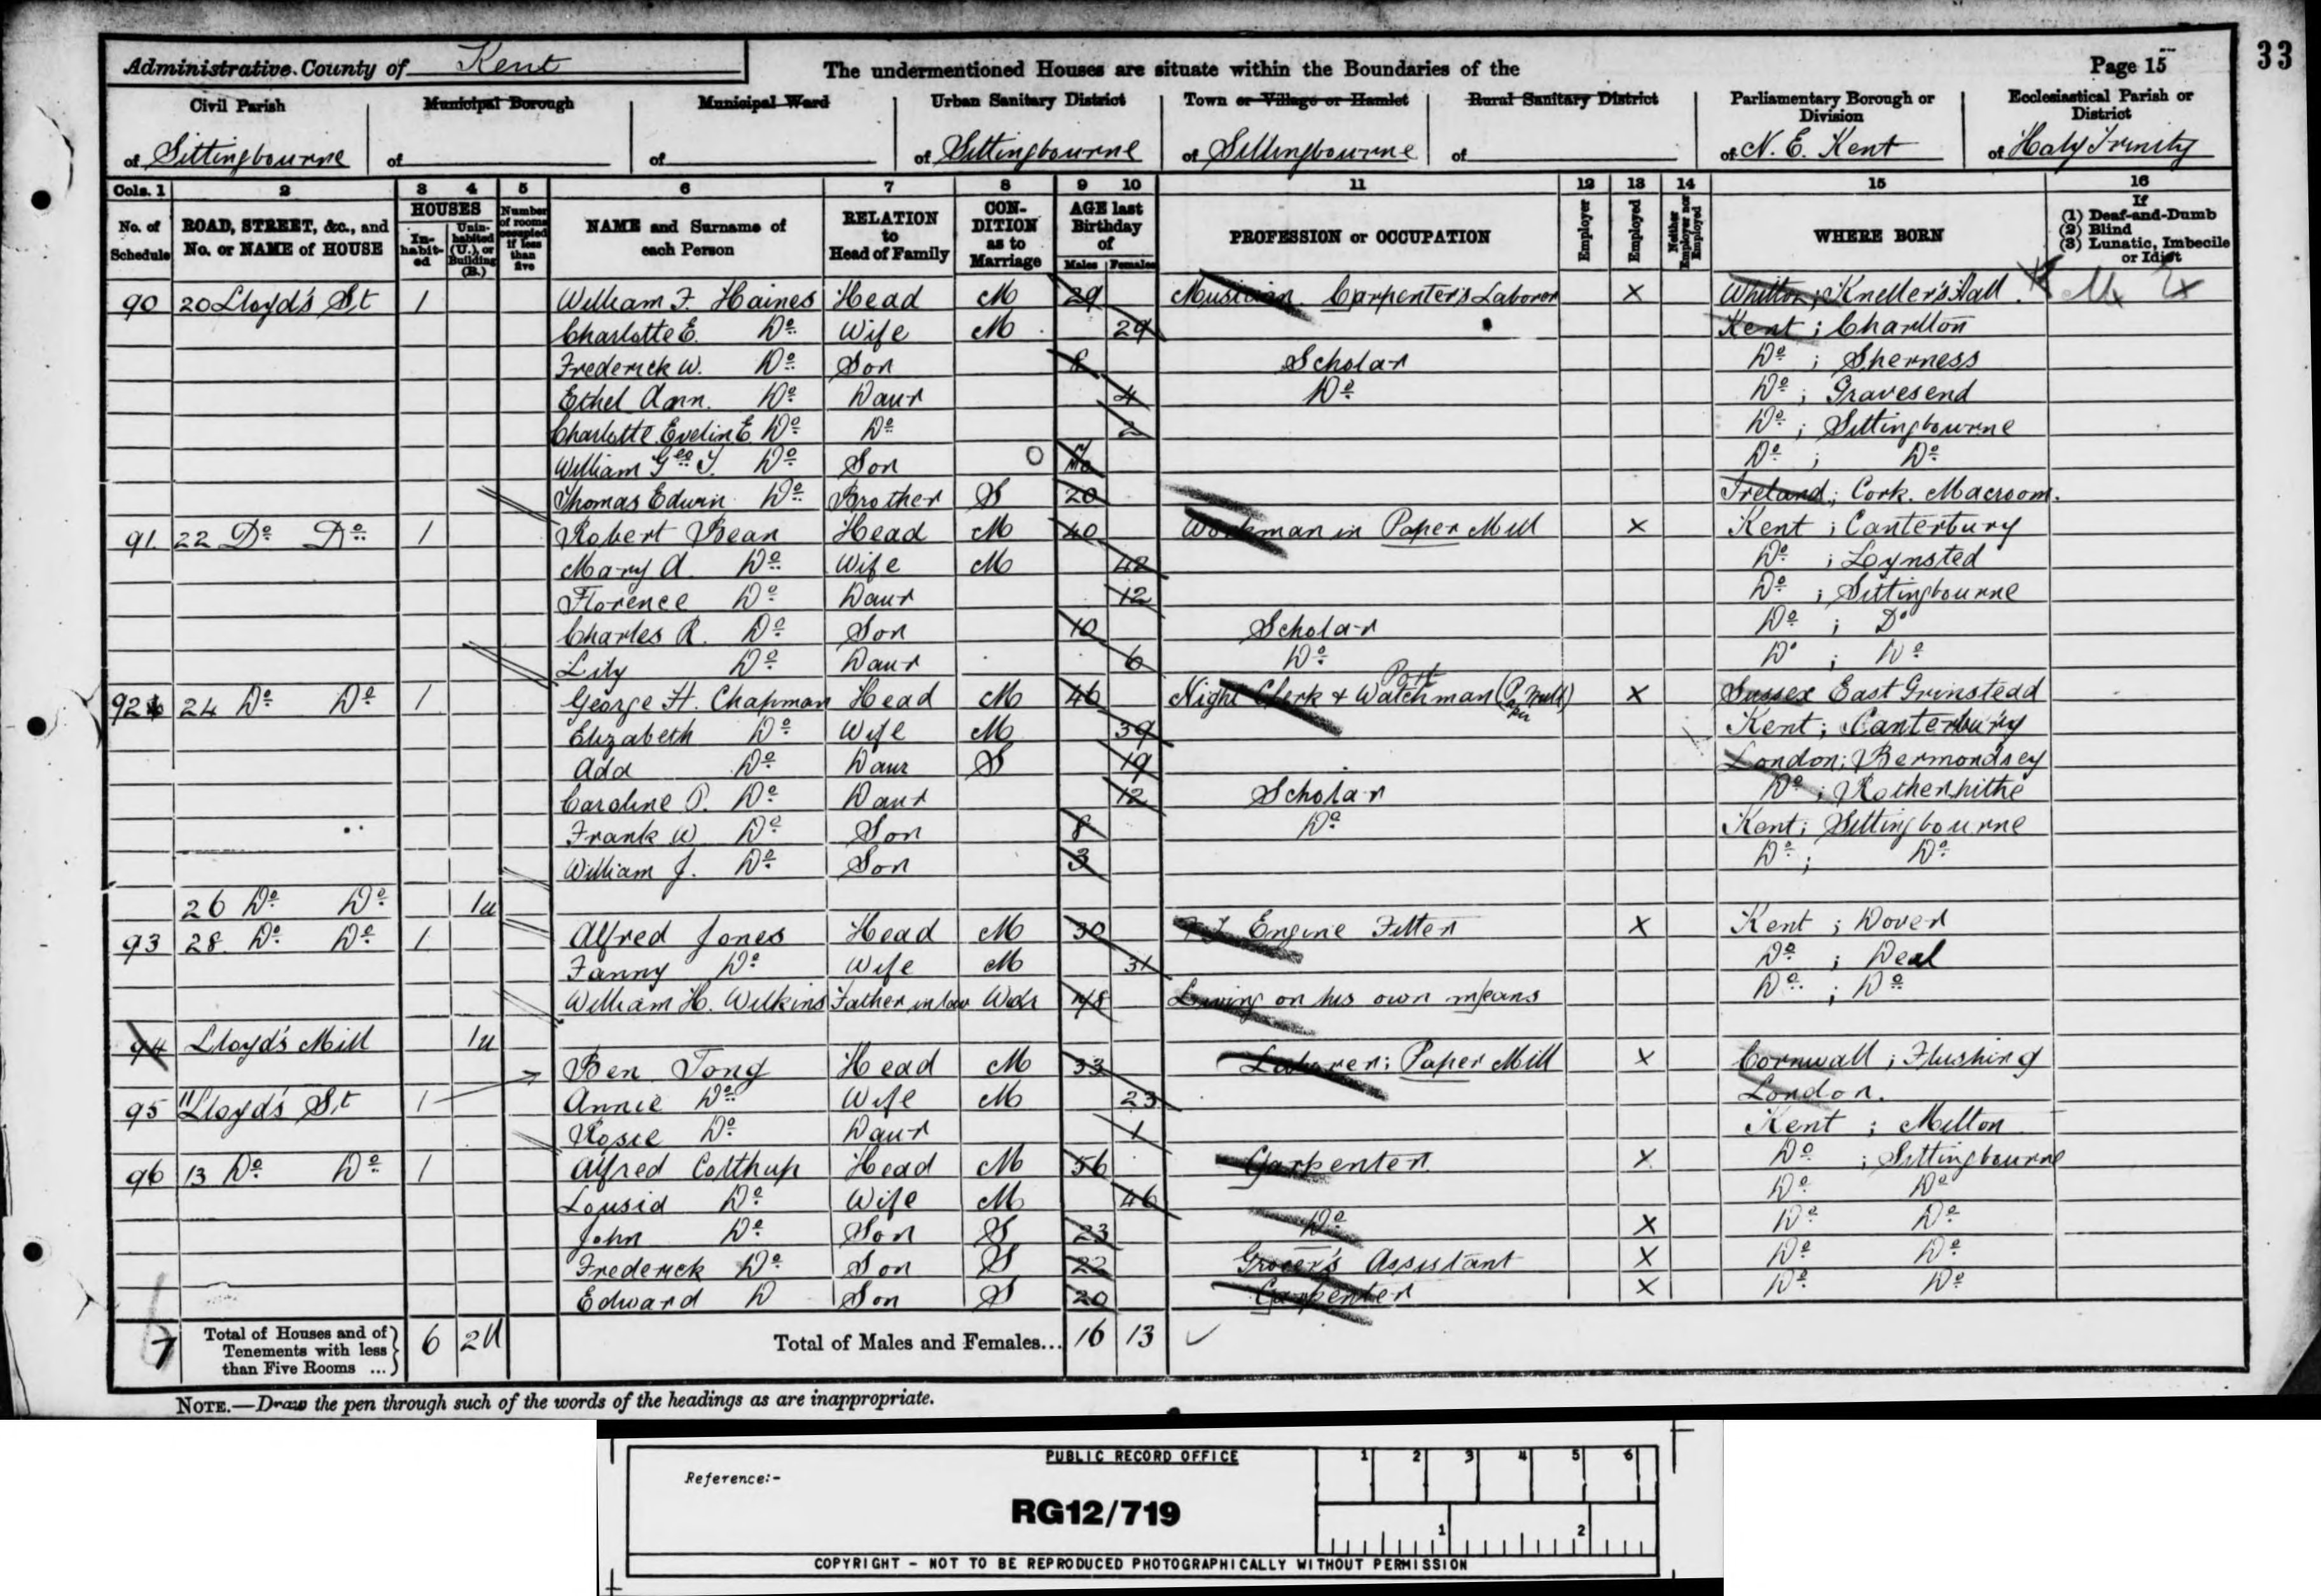 Administrative County of Kent The undermentioned Houses are situate within the Boundaries of the Page 15 33
Civil Parish Municipal Borough Municipal Ward Urban Sanitary District Town or Village or Hamlet Rural Sanitary District Parliamentary Borough or Division Ecclesiastical Parish or District
of Sittingbourne of of of Sittingbourne of Sittingbourne of of N. E. Kent of Holy Trinity
Cols. 1 2 3 4 5 6 7 8 9 10 11 12 13 14 15 16
No. of Schedule ROAD, STREET, &c., and No. or NAME of HOUSE HOUSES Inhabited Uninhabited (U.), or Building (B.) Number of rooms occupied if less than five NAME and Surname of each Person RELATION to Head of Family CONDITION as to Marriage AGE last Birthday of Males Females PROFESSION or OCCUPATION Employer Employed Neither Employer nor Employed WHERE BORN If (1) Deaf-and-Dumb (2) Blind (3) Lunatic, Imbecile or Idiot
90 20 Lloyd's St 1 William F. Haines Head M 29 Musician. Carpenter's Laborer X Whitton; Kneller's Hall
Charlotte E. Do Wife M 29 Kent; Charlton
Frederick W. Do Son 8 Scholar Do; Sherness
Ethel Ann. Do Daur 4 Do Do; Gravesend
Charlotte Evelin E Do Do 2 Do; Sittingbourne
William Geo Do Son Do; Do
Thomas Edwin Do Brother S 20 Ireland; Cork. Macroom.
91 22 Do Do 1 Robert Bean Head M 40 Workman in Paper Mill X Kent; Canterbury
Mary A. Do Wife M 42 Do; Lynsted
Florence Do Daur 12 Do; Sittingbourne
Charles R. Do Son 10 Scholar Do; Do
Lily Do Daur 6 Do Do; Do
92 24 Do Do 1 George H. Chapman Head M 46 Night Clerk & Watchman (Paper Mill) X Sussex East Grinstead
Elizabeth Do Wife M 39 Kent; Canterbury
Ada Do Daur S 19 London; Bermondsey
Caroline P. Do Daur 12 Scholar Do; Rotherhithe
Frank W Do Son 8 Do Kent; Sittingbourne
William J. Do Son 3 Do; Do
26 Do Do 1u
93 28 Do Do 1 Alfred Jones Head M 30 Engine Fitter X Kent; Dover
Fanny Do Wife M 31 Do; Deal
William H. Wilkins Father in law Widr Living on his own means Do; Do
94 Lloyd's Mill 1u
Ben Tong Head M 33 Laborer; Paper Mill X Cornwall; Flushing
95 11 Lloyd's St 1 Annie Do Wife M 23 London.
Rosie Do Daur 1 Kent; Milton
96 13 Do Do 1 Alfred Colthup Head M 56 Carpenter X Do; Sittingbourne
Lousia Do Wife M 46 Do Do
John Do Son S 23 Do X Do Do
Frederick Do Son S 22 Grocer's Assistant X Do Do
Edward D Son S 20 Carpenter X Do Do
7 Total of Houses and of Tenements with less than Five Rooms ... 6 2U Total of Males and Females... 16 13
NOTE.—Draw the pen through such of the words of the headings as are inappropriate.
PUBLIC RECORD OFFICE 1 2 3 4 5 6
Reference:-
RG12/719
1 2
COPYRIGHT - NOT TO BE REPRODUCED PHOTOGRAPHICALLY WITHOUT PERMISSION